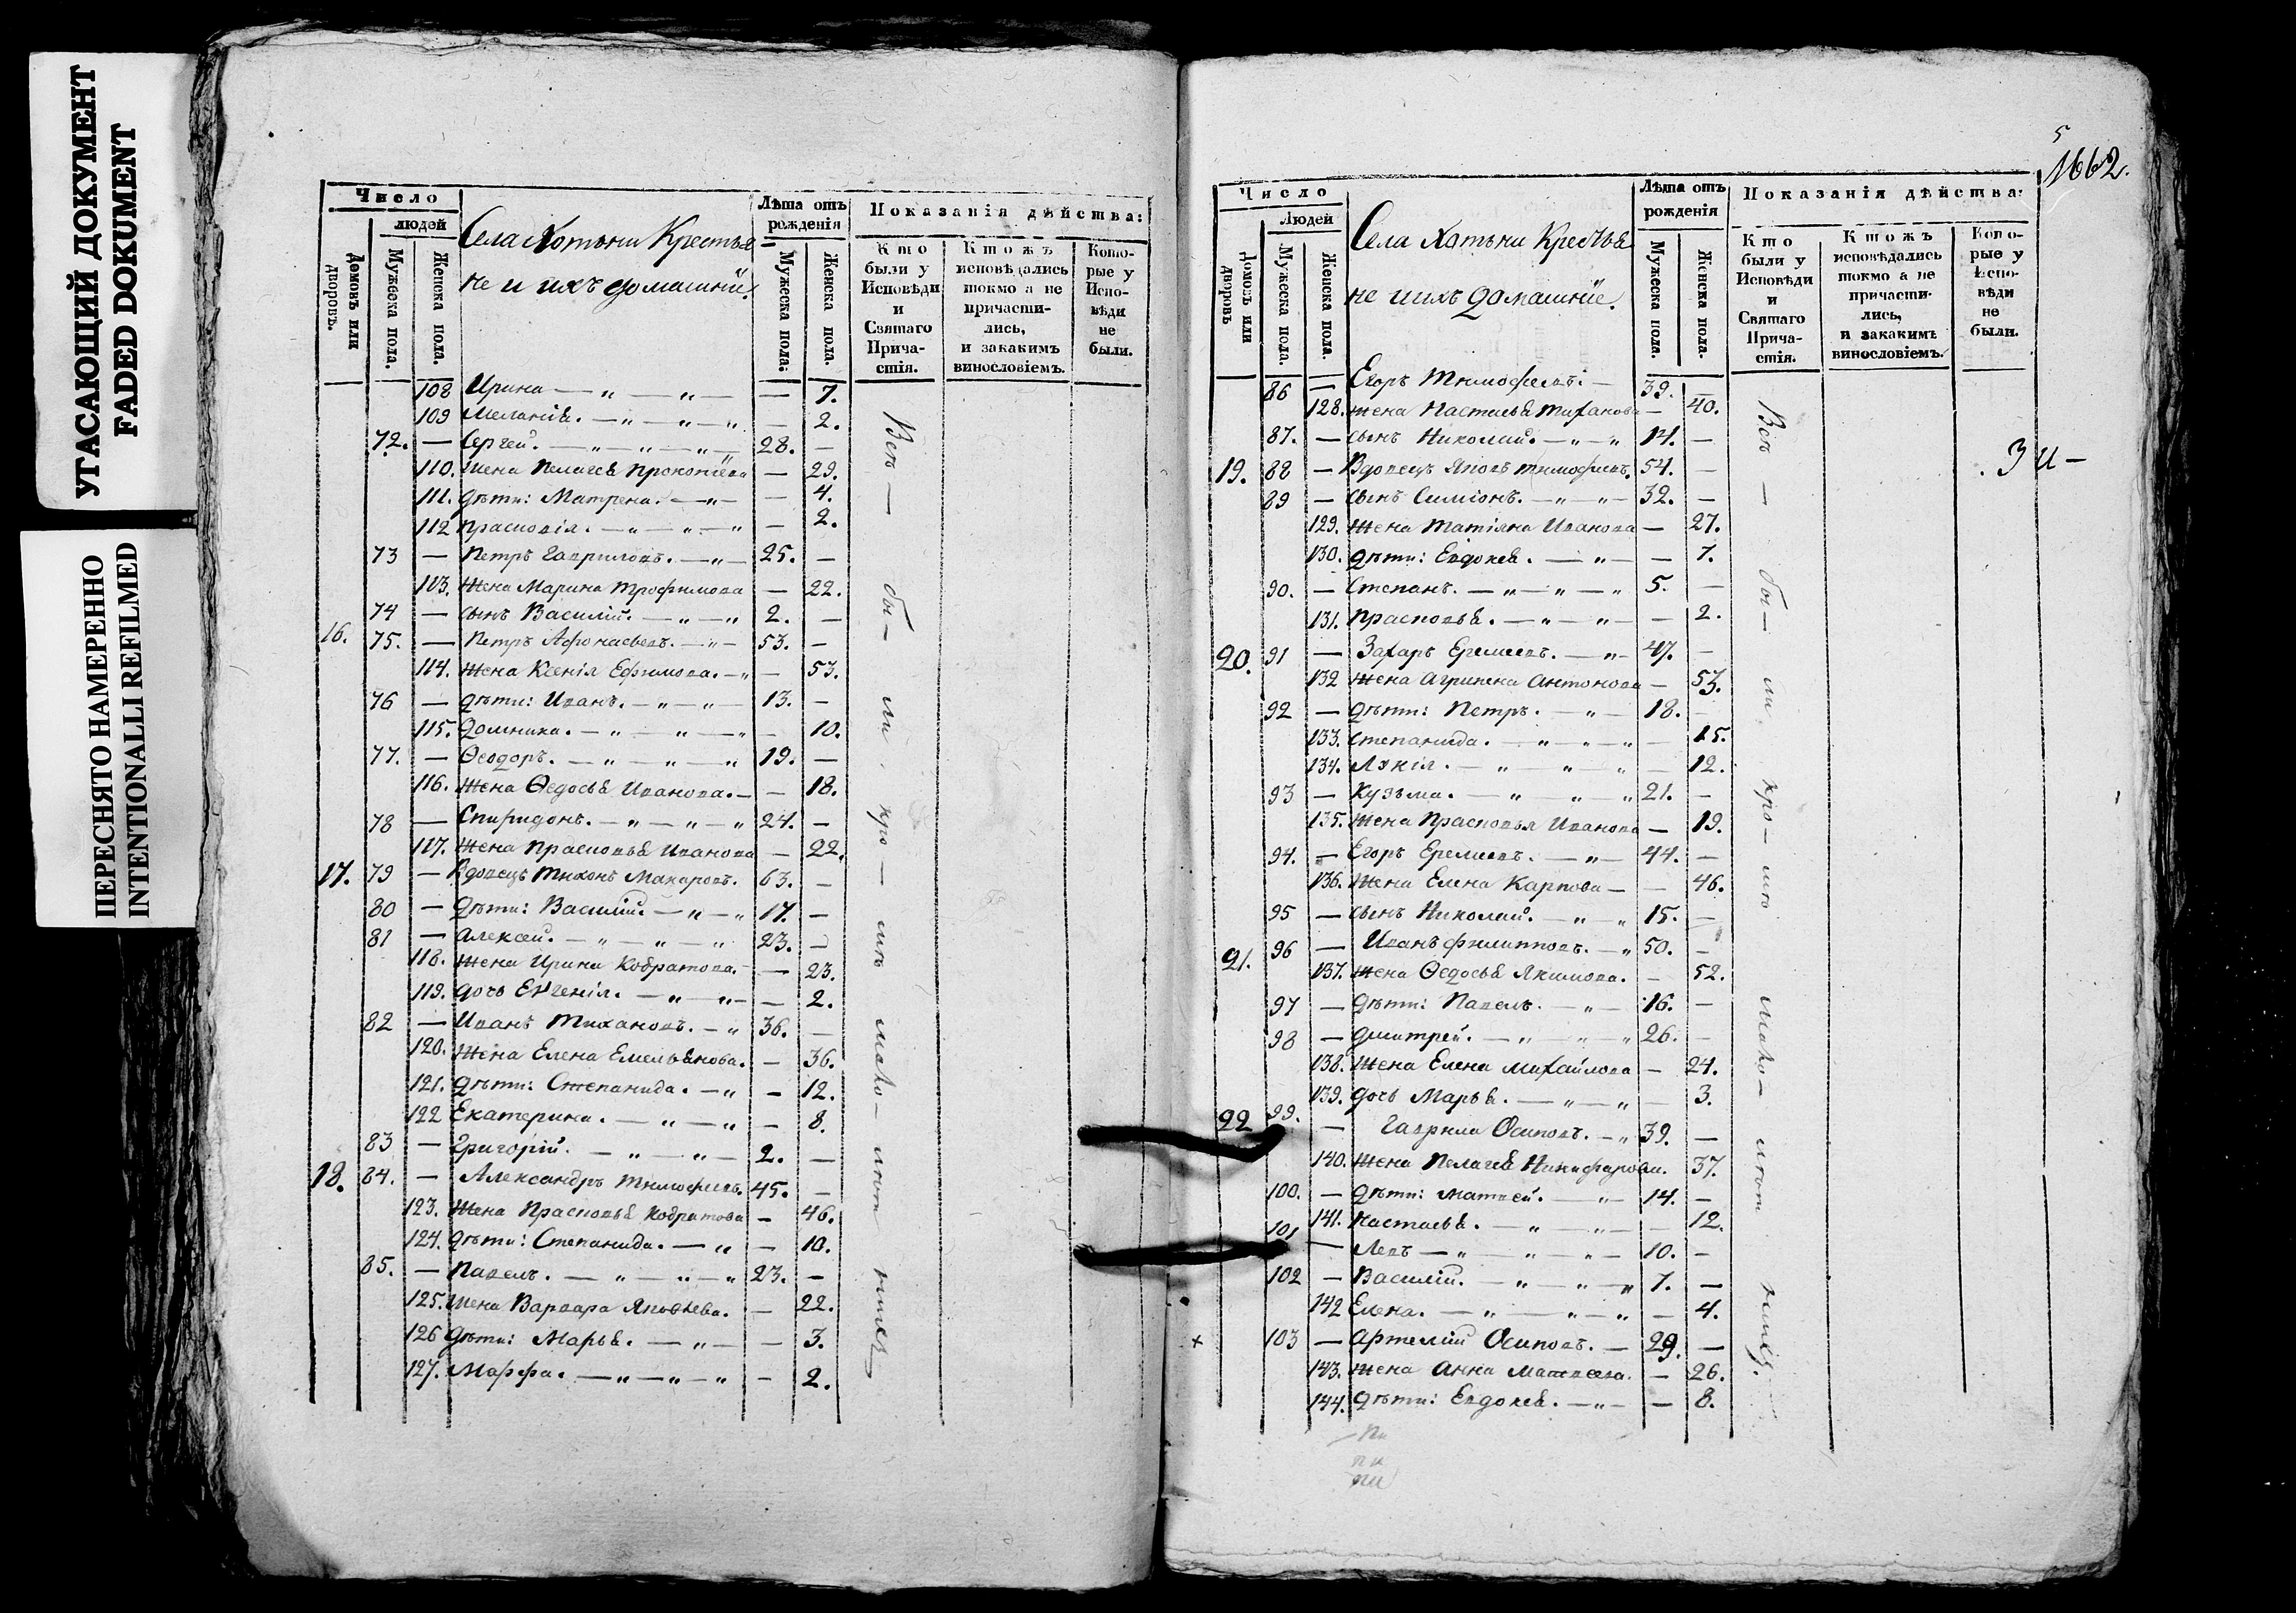 УГАСАЮЩИЙ ДОКУМЕНТ
FADED DOKUMENT
ПЕРЕСНЯТО НАМЕРЕННО
INTENTIONALLI REFILMED
Число
людей
Домовъ или дворовъ.
Мужеска пола.
Женска пола.
Села Хотыни Крестья
не и ихъ домашніе.
Лѣта отъ рожденія
Мужеска пола:
Женска пола.
Показанія дѣйства:
Кто были у Исповѣди и Святаго Причастія.
Ктожъ исповѣдались токмо а не причастились, и закакимъ винословіемъ.
Которые у Исповѣди не были.
108 Ирина — „ — „ — — 7.
109 Меланія. — „ — „ — „ — 2.
72. — Сергей. — „ — „ — „ — 28. —
110. Жена Пелагея Прокопіева — 29.
111. дѣти: Матрена. — „ — — 4.
112 Прасковія. — „ — „ — „ — 2.
73 — Петръ Гавриловъ. — „ — 25. —
113. Жена Марина Трофимова — 22.
74 — сынъ Василій. — „ — „ 2. —
16. 75. — Петръ Афонасьевъ. — „ — 53. —
114. Жена Ксенія Ефимова. — „ — 53.
76 — дѣти: Иванъ. — „ — „ — 13. —
115. Домника. — „ — „ — „ — 10.
77. — Ѳеодоръ. — „ — „ — „ 19. —
116. Жена Ѳедосья Иванова. — — 18.
78 — Спиридонъ. — „ — „ — „ 24. —
117. Жена Прасковья Иванова — 22.
17. 79 — Вдовецъ Тихонъ Макаровъ. 63. —
80 — дѣти: Василій. — „ — „ 17. —
81 — Алексей. — „ — „ — „ 23. —
118. Жена Ирина Кодратова. — 23.
119. дочь Евгенія. — „ — „ — — 2.
82 — Иванъ Тихановъ. — „ 36. —
120. Жена Елена Емельянова. — 36.
121. дѣти: Степанида. — „ — 12.
122 Екатерина. — „ — „ — 8.
83 — Григорій. — „ — „ — 2. —
18. 84. — Александръ Тимофеевъ. 45. —
123. Жена Прасковья Кодратова — 46.
124. дѣти: Степанида. — „ — 10.
85. — Павелъ. — „ — „ — „ 23. —
125. Жена Варвара Яковлева. — 22.
126 дѣти: Марья. — „ — — 3.
127. Марфа. — „ — „ — „ — 2.
Всѣ — бы — ли
5
1662.
Число
Людей
Домовъ или дворовъ
Мужеска пола.
Женска пола.
Села Хотыни Крестья
не и ихъ домашніе.
Лѣта отъ рожденія
Мужеска пола.
Женска пола.
Показанія дѣйства:
Кто были у Исповѣди и Святаго Причастія.
Ктожъ исповѣдались токмо а не причастились, и закакимъ винословіемъ.
Которые у Исповѣди не были.
86 — Егоръ Тимофеевъ. — 39. —
128. Жена Настасья Тиханова — 40.
87. — сынъ Николай. — „ — „ 14. —
19. 88 — Вдовецъ Яковъ Тимофеевъ. 54. —
89 — сынъ Симіонъ. — „ — „ — 32. —
129. Жена Татіяна Иванова — 27.
130. дѣти: Евдокея. — „ — — 7.
90. — Степанъ. — „ — „ — „ 5. —
131. Прасковья. — „ — „ — — 2.
20. 91 — Захаръ Еремеевъ. — „ — 47. —
132 Жена Агрипена Антонова — 53.
92 — дѣти: Петръ. — „ — 18. —
133. Степанида. — „ — „ — „ — 15.
134. Лукія. — „ — „ — „ — 12.
93 — Кузьма. — „ — „ — „ 21. —
135. Жена Прасковья Иванова — 19.
94. — Егоръ Еремеевъ. — „ — 44. —
136. Жена Елена Карпова — — 46.
95 — сынъ Николай. — „ — „ 15. —
21. 96 — Иванъ Филипповъ. — „ 50. —
137. Жена Ѳедосья Якимова. — 52.
97 — дѣти: Павелъ. — „ — 16. —
98 — Дмитрей. — „ — „ — „ 26. —
138. Жена Елена Михайлова — 24.
139. дочь Марья. — „ — „ — 3.
22 99. — Гаврила Осиповъ. — „ 39. —
140. Жена Пелагея Никифарова. 37.
100. — дѣти: Матвей. — „ — 14. —
141. Настасья. — „ — „ — — 12.
101 — Левъ — „ — „ — „ — 10. —
102 — Василій. — „ — „ — „ 7. —
142 Елена. — „ — „ — „ — 4.
× 103 — Артемій Осиповъ. — 29. —
143. Жена Анна Матвеева. — 26.
144. дѣти: Евдокея. — „ — — 8.
Всѣ — бы — ли